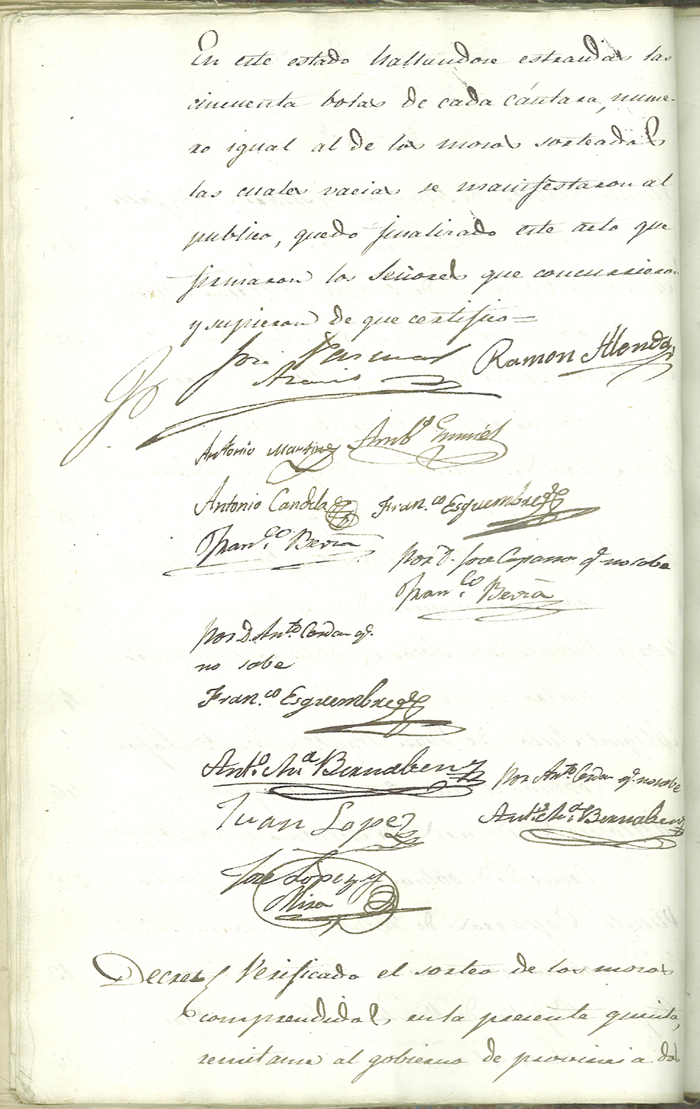 En este estado hallandose estraidas las
cincuenta bolas de cada cántara, nume-
ro igual al de los mozos sorteados
las cuales vacias se manifestaron al
publico, quedo finalizado este acto que
firmaron los Señores que concurrieron
y supieron de que certifico =
José Pascual Ramon Alonda
Antonio Martinez Amb.º
Antonio Candela Fran.co Esquembre
Fran.co Bevia
Por D. Jose Caparra q.e no sabe
Fran.co Bevia
Por D. Ant.º Cerdan q.e
no sabe
Fran.co Esquembre
Ant.º M.a Bernabeu
Por Ant.º Cerdan q.e no sabe
Juan Lopez Ant.º M.a Bernabeu
José Lopez y
Mira
Decret.º Verificado el sorteo de los mozos
comprendidos en la presente quinta,
remitanse al gobierno de provincia dos